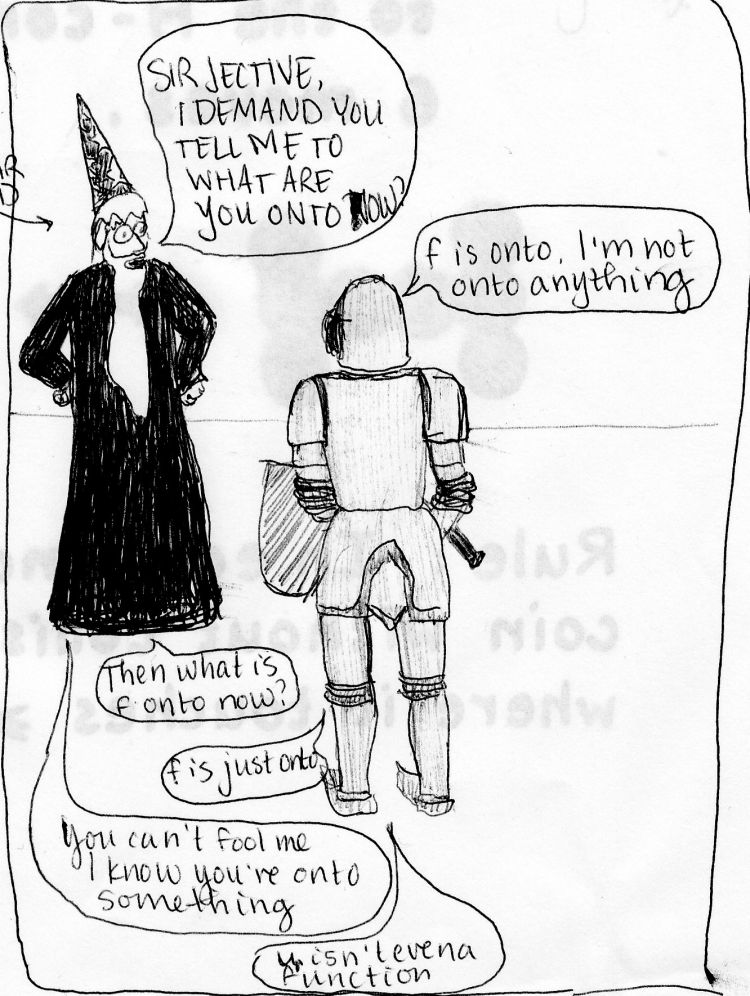 SIR JECTIVE,
I DEMAND YOU
TELL ME TO
WHAT ARE
YOU ONTO NOW?
f is onto, I'm not
onto anything
Then what is
f onto now?
f is just onto
You can't fool me
I know you're onto
something
isn't even a
function